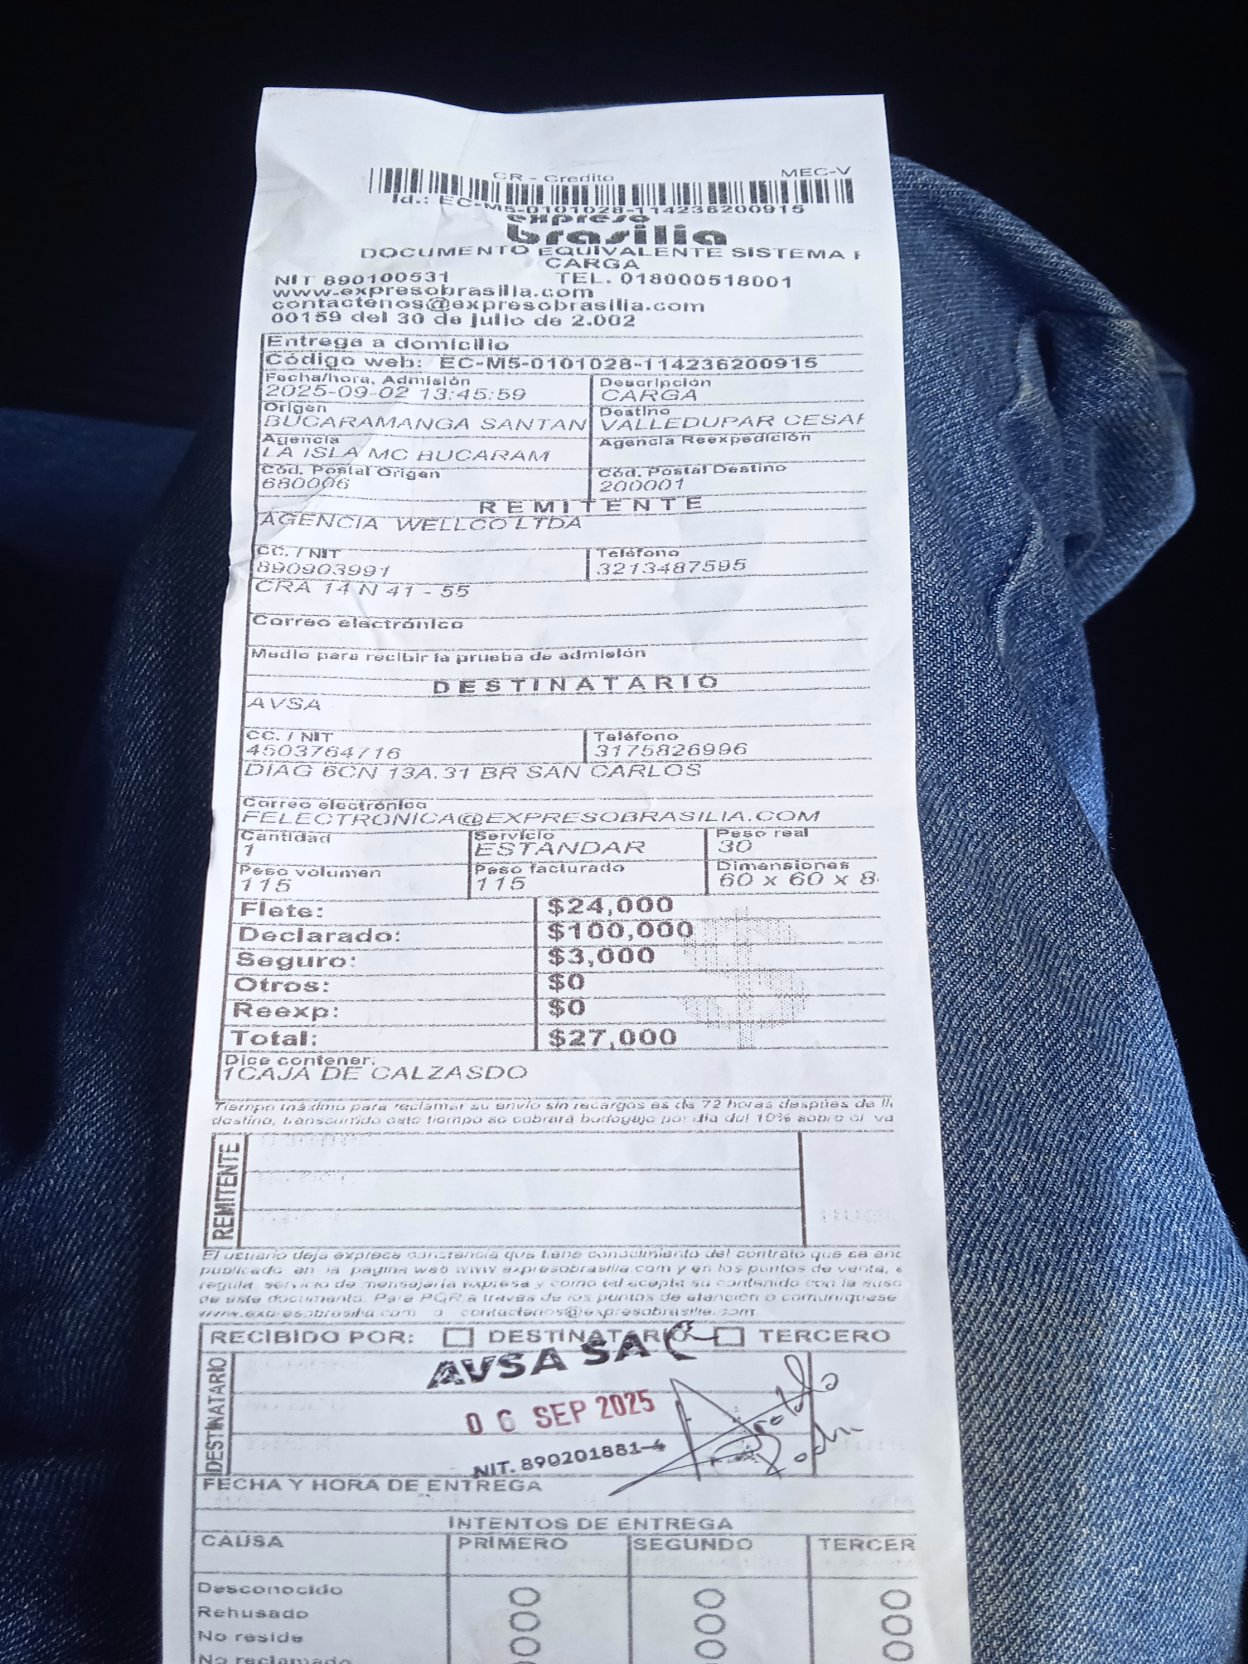 CR - Credito MEC-V
Id.: EC-M5-0101028-114236200915
expreso
brasilia
DOCUMENTO EQUIVALENTE SISTEMA
CARGA
NIT 890100531 TEL. 018000518001
www.expresobrasilia.com
contactenos@expresobrasilia.com
00159 del 30 de julio de 2.002
Entrega a domicilio
Código web: EC-M5-0101028-114236200915
Fecha/hora, Admisión Descripción
2025-09-02 13:45:59 CARGA
Origen Destino
BUCARAMANGA SANTAN VALLEDUPAR CESAR
Agencia Agencia Reexpedición
LA ISLA MC BUCARAM
Cód. Postal Origen Cód. Postal Destino
680006 200001
REMITENTE
AGENCIA WELLCO LTDA
CC. / NIT Teléfono
890903991 3213487595
CRA 14 N 41 - 55
Correo electrónico
Medio para recibir la prueba de admisión
DESTINATARIO
AVSA
CC. / NIT Teléfono
4503764716 3175826996
DIAG 6CN 13A.31 BR SAN CARLOS
Correo electrónico
FELECTRONICA@EXPRESOBRASILIA.COM
Cantidad Servicio Peso real
1 ESTANDAR 30
Peso volumen Peso facturado Dimensiones
115 115 60 x 60 x 8
Flete: $24,000
Declarado: $100,000
Seguro: $3,000
Otros: $0
Reexp: $0
Total: $27,000
Dice contener:
1CAJA DE CALZASDO
Tiempo máximo para reclamar su envío sin recargos es de 72 horas después de
destino, transcurrido este tiempo se cobrará bodegaje por día del 10% sobre el va
REMITENTE
El usuario deja expresa constancia que tiene conocimiento del contrato que se
publicado en la pagina web www.expresobrasilia.com y en los puntos de venta,
regula servicio de mensajería expresa y como tal acepta su contenido con la susc
de este documento. Para PQR a través de los puntos de atención o comuníquese
www.expresobrasilia.com o contactenos@expresobrasilia.com
RECIBIDO POR: DESTINATARIO TERCERO
DESTINATARIO
AVSA SA
06 SEP 2025
NIT. 890201881-4
FECHA Y HORA DE ENTREGA
INTENTOS DE ENTREGA
CAUSA PRIMERO SEGUNDO TERCER
Desconocido
Rehusado
No reside
No reclamado